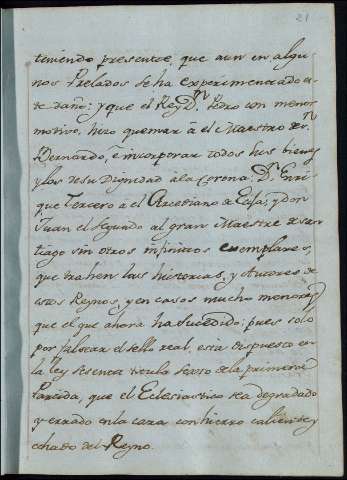 21
teniendo presente, que aun en algu-
nos Prelados se ha experimentado es-
te daño: y que el Rey Dn. Pedro con menor
motivo, hizo quemar á el Maestro Sn.
Bernardo, é incorporar todos sus bienes
y los de su Dignidad á la Corona: Dn. Enri-
que tercero á el Arcediano de Ecija; y don
Juan el Segundo al gran Maestre de San-
tiago sin otros infinitos exemplares,
que trahen las historias, y Autores de
estos Reynos, y en casos mucho menores
que el que ahora ha sucedido; pues solo
por falsear el sello real, está dispuesto en
la ley sesenta titulo sexto de la primera
Partida, que el Eclesiastico sea degradado
y errado en la cara con hierro caliente, y
echado del Reyno.